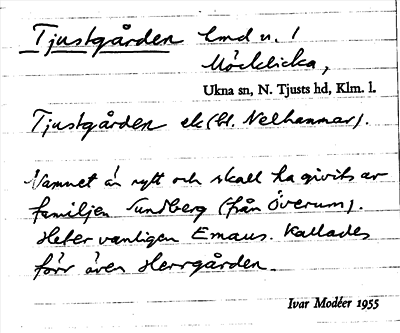 Tjustgården lmd u. 1
Mörklicka,
Ukna sn, N. Tjusts hd, Klm. l.
Tjustgården ek (bl. Nelhammar).
Namnet är nytt och skall ha givits av
familjen Sundberg (från Överum).
Heter vanligen Emaus. Kallades
förr även Herrgården.
Ivar Modéer 1955